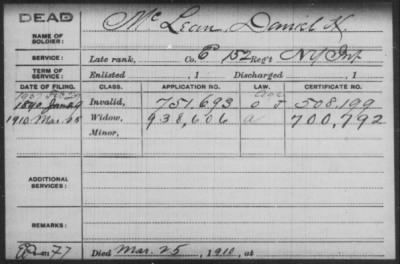 DEAD
NAME OF SOLDIER: McLean, Daniel H.
SERVICE: Late rank, Co. G 152 Reg't NY Inf
TERM OF SERVICE: Enlisted , 1 Discharged , 1
DATE OF FILING. CLASS. APPLICATION NO. LAW. CERTIFICATE NO.
1890, June 9 Invalid, 751,693 508,199
1910 Mar. Widow, 938,606 a 700,792
Minor,
ADDITIONAL SERVICES:
REMARKS:
Died Mar. 25, 1910, at